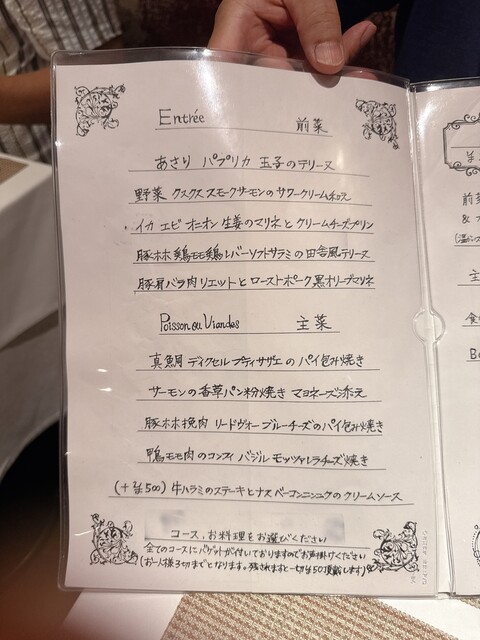 Entrée 前菜
あさり パプリカ 玉子のテリーヌ
野菜 クスクス スモークサーモンのサワークリーム和え
・イカ エビ オニオン 生姜のマリネと クリームチーズプリン
豚ホホ 鶏モモ 鶏レバー ソフトサラミの 田舎風テリーヌ
豚肩バラ肉 リエットと ローストポーク 黒オリーブマリネ
Poisson ou Viandes 主菜
真鯛 ディクセル プティサザエの パイ包み焼き
サーモンの香草パン粉焼き マヨネーズ添え
豚ホホ挽肉 リードヴォー ブルーチーズのパイ包み焼き
鴨モモ肉のコンフィ バジル モッツァレラチーズ焼き
(+¥500) 牛ハラミのステーキとナス ベーコンニンニクのクリームソース
コース、お料理をお選びください
全てのコースにバゲットが付いておりますのでお声掛けください
(お一人様3切までとなります。残されますと一切¥50頂戴します)
前菜
&
主
食